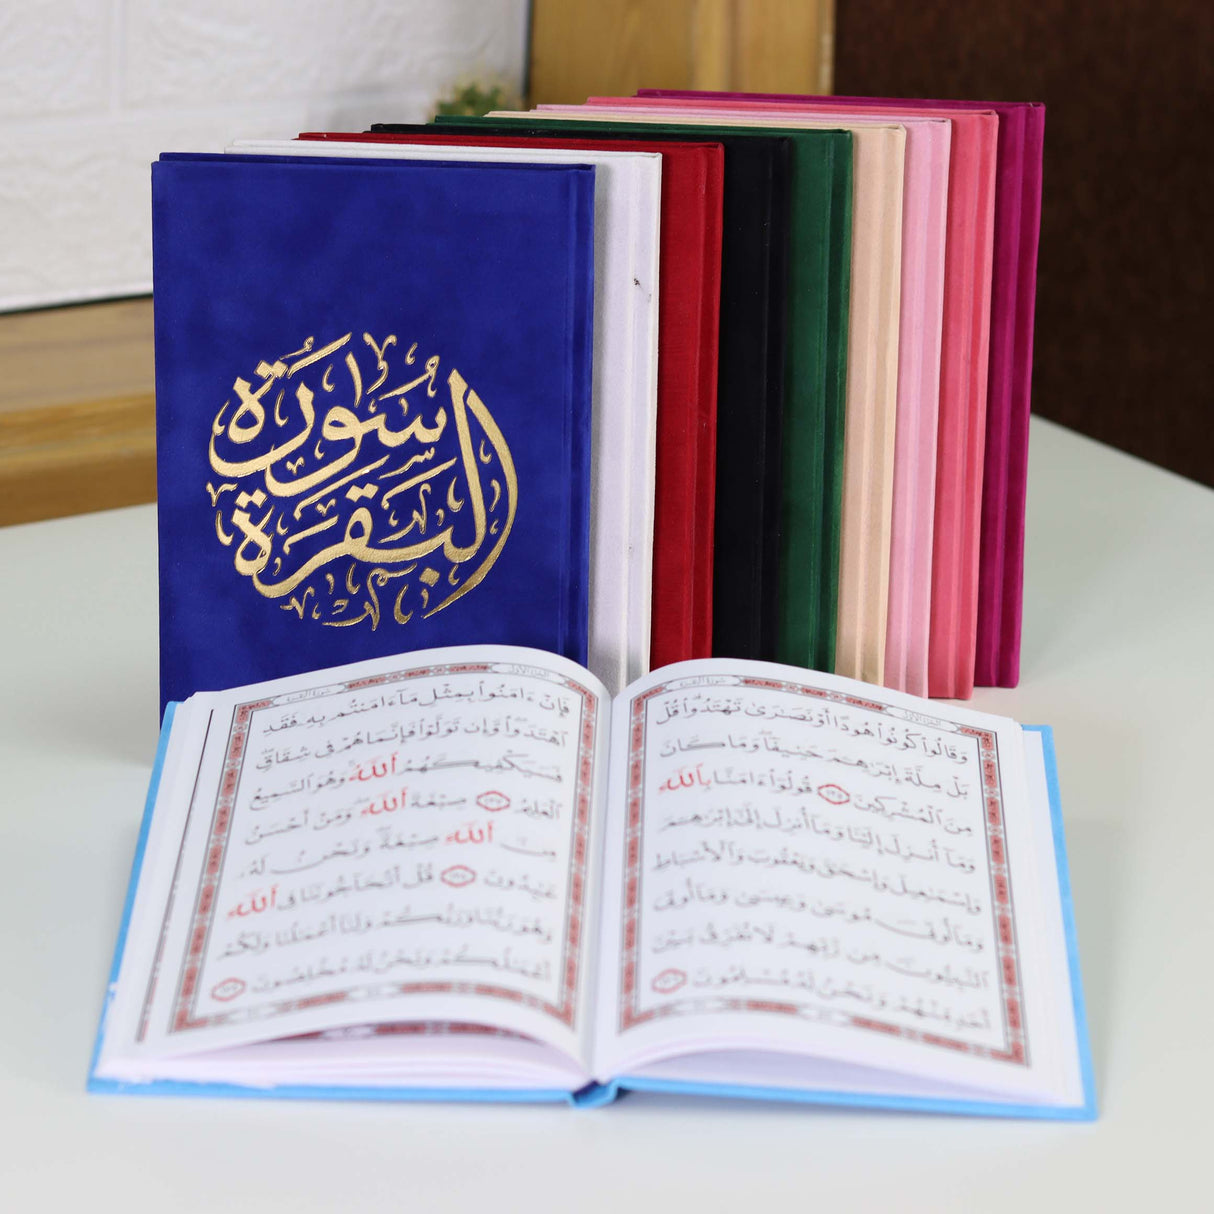 سُورَةُ
البَقَرَة
سُورَةُ البَقَرَة
الجُزءُ الأَوَّل
وَقَالُوا۟ كُونُوا۟ هُودًا أَوْ نَصَـٰرَىٰ تَهْتَدُوا۟ ۗ قُلْ
بَلْ مِلَّةَ إِبْرَٰهِـۧمَ حَنِيفًا ۖ وَمَا كَانَ
مِنَ ٱلْمُشْرِكِينَ ١٣٥ قُولُوٓا۟ ءَامَنَّا بِٱللَّهِ
وَمَآ أُنزِلَ إِلَيْنَا وَمَآ أُنزِلَ إِلَىٰٓ إِبْرَٰهِـۧمَ
وَإِسْمَـٰعِيلَ وَإِسْحَـٰقَ وَيَعْقُوبَ وَٱلْأَسْبَاطِ
وَمَآ أُوتِىَ مُوسَىٰ وَعِيسَىٰ وَمَآ أُوتِىَ
ٱلنَّبِيُّونَ مِن رَّبِّهِمْ لَا نُفَرِّقُ بَيْنَ
أَحَدٍ مِّنْهُمْ وَنَحْنُ لَهُۥ مُسْلِمُونَ ١٣٦
سُورَةُ البَقَرَة
الجُزءُ الأَوَّل
فَإِنْ ءَامَنُوا۟ بِمِثْلِ مَآ ءَامَنتُم بِهِۦ فَقَدِ
ٱهْتَدَوا۟ ۖ وَّإِن تَوَلَّوْا۟ فَإِنَّمَا هُمْ فِى شِقَاقٍ ۖ
فَسَيَكْفِيكَهُمُ ٱللَّهُ ۚ وَهُوَ ٱلسَّمِيعُ
ٱلْعَلِيمُ ١٣٧ صِبْغَةَ ٱللَّهِ ۖ وَمَنْ أَحْسَنُ
مِنَ ٱللَّهِ صِبْغَةً ۖ وَنَحْنُ لَهُۥ
عَـٰبِدُونَ ١٣٨ قُلْ أَتُحَآجُّونَنَا فِى ٱللَّهِ
وَهُوَ رَبُّنَا وَرَبُّكُمْ وَلَنَآ أَعْمَـٰلُنَا وَلَكُمْ
أَعْمَـٰلُكُمْ وَنَحْنُ لَهُۥ مُخْلِصُونَ ١٣٩